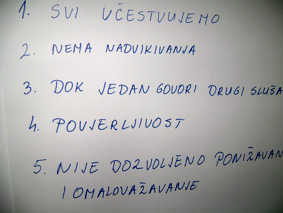 1. SVI UČESTVUJEMO
2. NEMA NADVIKIVANJA
3. DOK JEDAN GOVORI DRUGI SLUŠA
4. POVJERLJIVOST
5. NIJE DOZVOLJENO PONIŽAVAN
I OMALOVAŽAVANJE